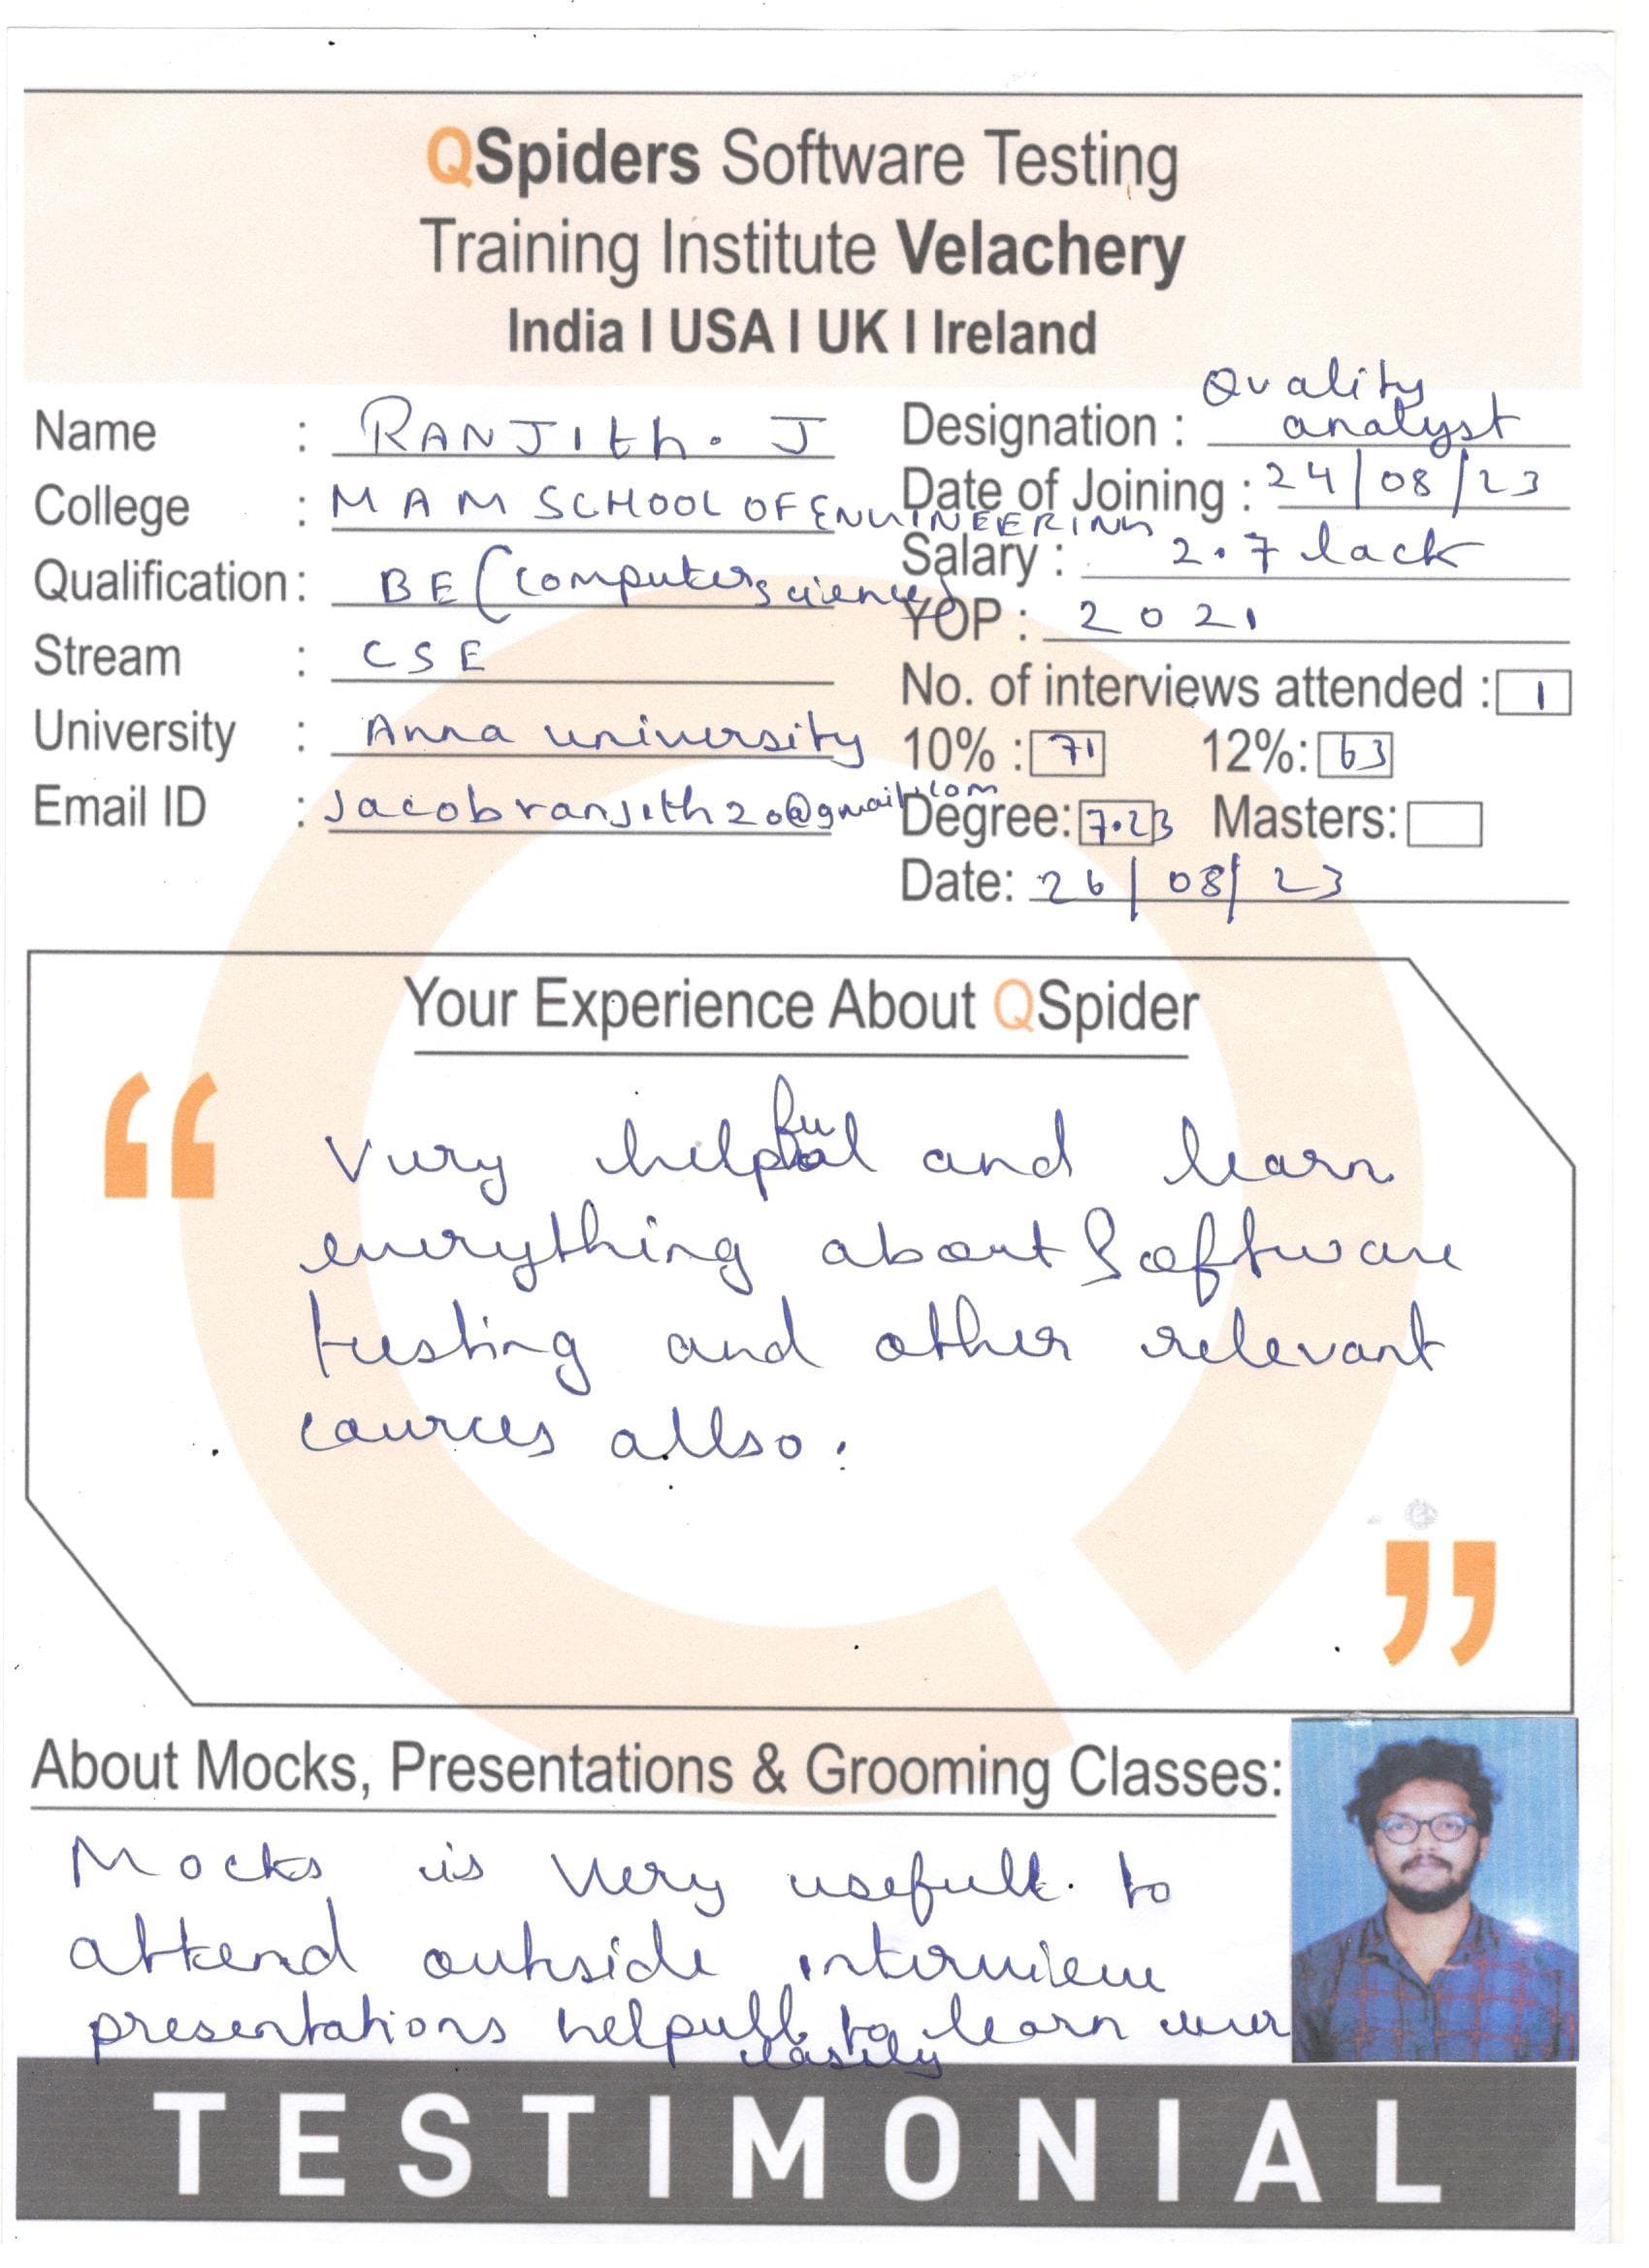 QSpiders Software Testing
Training Institute Velachery
India I USA I UK I Ireland
Name : RANJIth. J
College : M A M SCHOOL OF ENGINEERING
Qualification : BE (Computer science)
Stream : CSE
University : Anna university
Email ID : Jacobranjith20@gmail.com
Designation : Quality analyst
Date of Joining : 24/08/23
Salary : 2.7 lack
YOP : 2021
No. of interviews attended : 1
10% : 71 12%: 63
Degree: 7.23 Masters:
Date: 26/08/23
Your Experience About QSpider
“
Very helpful and learn
everything about Software
testing and other relevant
cources allso.
”
About Mocks, Presentations & Grooming Classes:
Mocks is very usefull. to
attend outside interview
presentations helpull to learn
easily
TESTIMONIAL